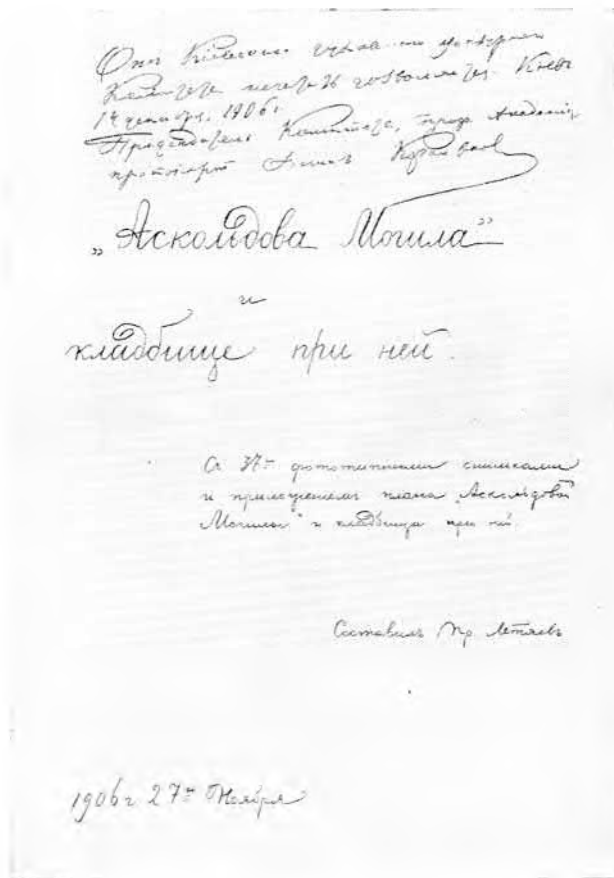 Отъ Киевскаго
Комитета печатать дозволяется. Киевъ
14 декабря, 1906 г.
Председатель Комитета, проф. Академіи
протоіерей
„Аскольдова Могила“
и
кладбище при ней.
Съ 37ю фототипными снимками
и приложеніемъ плана „Аскольдовой
Могилы“ и кладбища при ней.
Составилъ Пр.
1906 г 27го Ноября